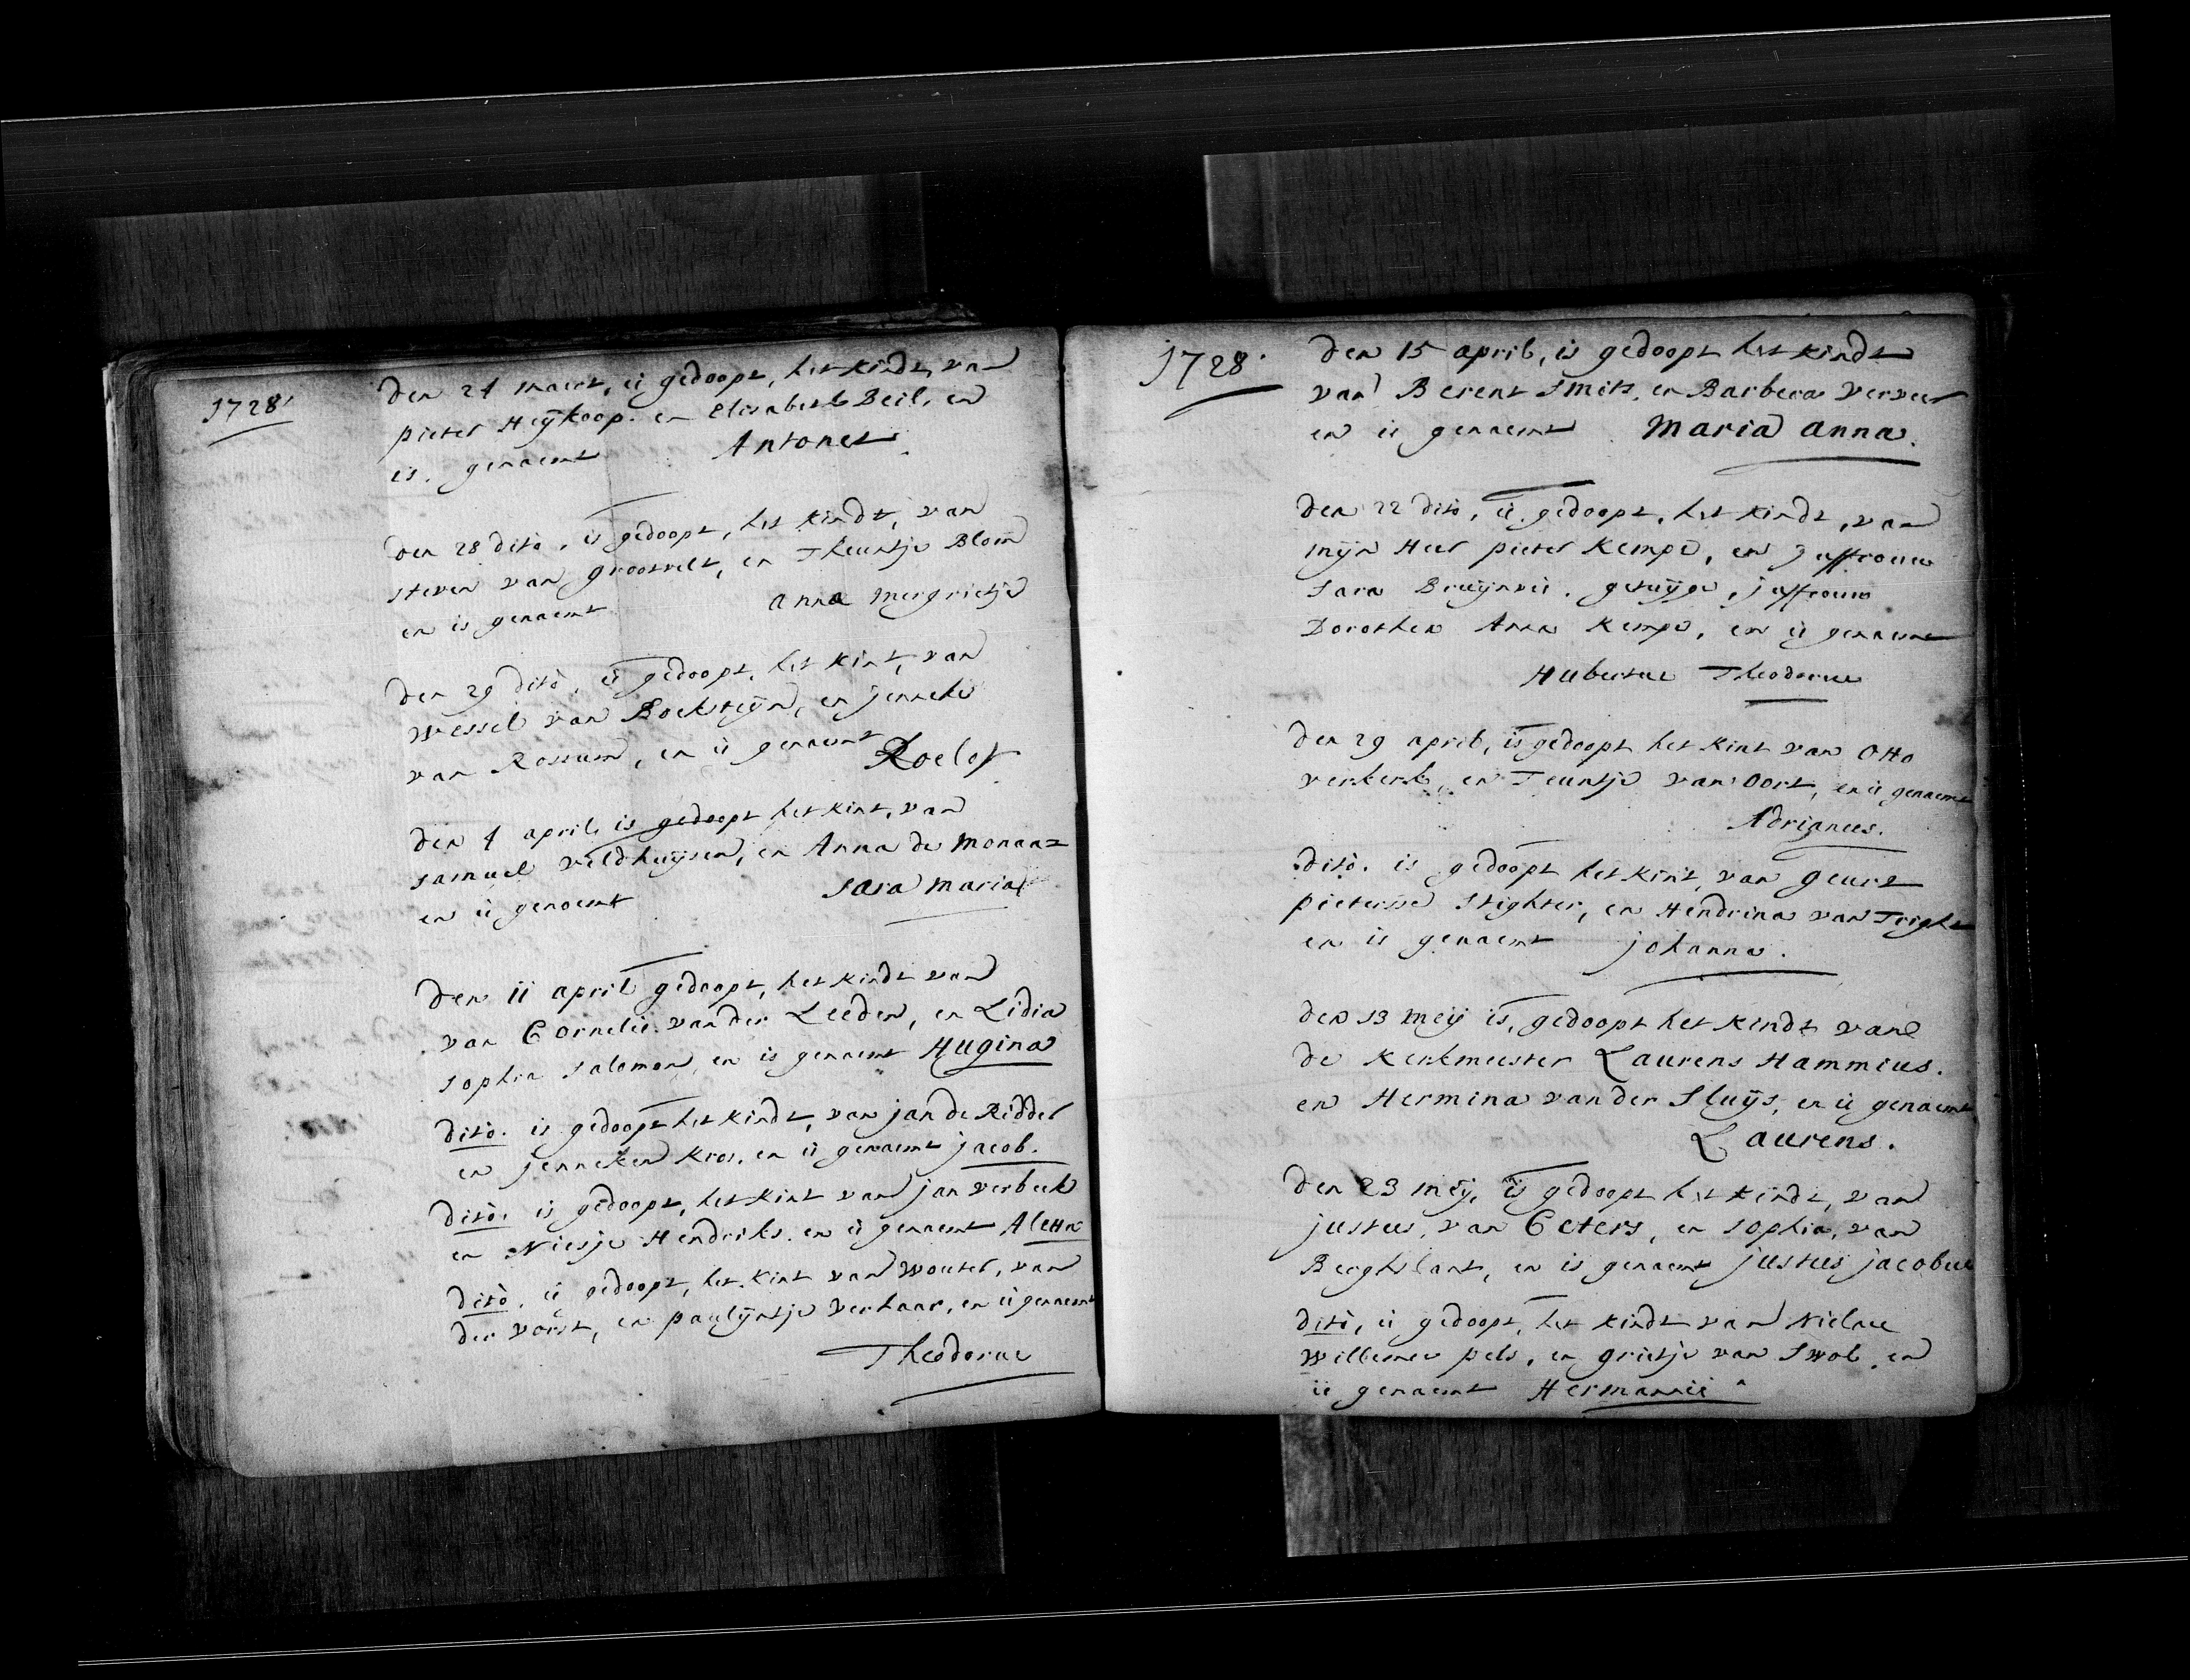 1728
Den 24 maert, is gedoopt, het kindt, van
pieter Heijkoop. en Elisabeth Beil, en
is. genaemt Antonet.
Den 28 dito, is gedoopt, het kindt, van
steven van grootvelt, en Theuntje Blom
en is genaemt anna mergrietje
Den 29 dito, is gedoopt, het kint, van
Wessel van Boeksteijn, en jenneke
van Rossum, en is genaemt Roelof
Den 4 april is gedoopt het kint, van
samuel veldhuijsen, en Anna de
en is genoemt sara maria
Den 11 april gedoopt, het kindt van
van Cornelis van der Leeden, en Lidia
sophia salomon, en is genaemt Hugina
dito. is gedoopt het kindt, van jan de Ridder
en jenneken kros. en is genaemt jacob.
dito. is gedoopt, het kint van jan verbeek
en Niesje Hendriks. en is genaemt Aletta
dito, is gedoopt, het kint van wouter, van
der vorst, en paulijntje verhaar, en is genaemt
Theodorus
1728.
Den 15 april, is gedoopt het kindt
van Berent smits, en Barbera verveer
en is genaemt Maria anna.
Den 22 dito, is gedoopt, het kindt, van
mijn Heer pieter Kempe, en juffrouw
sara Bruijnvis. getuijge, juffrouw
Dorothea Anna Kempe, en is genaemt
Hubertus Theodorus
Den 29 april, is gedoopt het kint van Otto
verkerk, en Teuntje van Oort, en is genaemt
Adrianus.
dito. is gedoopt het kint, van geurt
pieterse stighter, en Hendrina van Tright
en is genaemt johanna.
Den 13 meij is, gedoopt het kindt van
de kerkmeester Laurens Hammius.
en Hermina van der sluijs, en is genaemt
Laurens.
Den 23 meij, is gedoopt het kindt, van
justus, van Ceters, en sophia, van
Berghslant, en is genaemt justus jacobus
dito, is gedoopt, het kindt van Niclaes
Willemse pels, en grietje van swol, en
is genaemt Hermannis